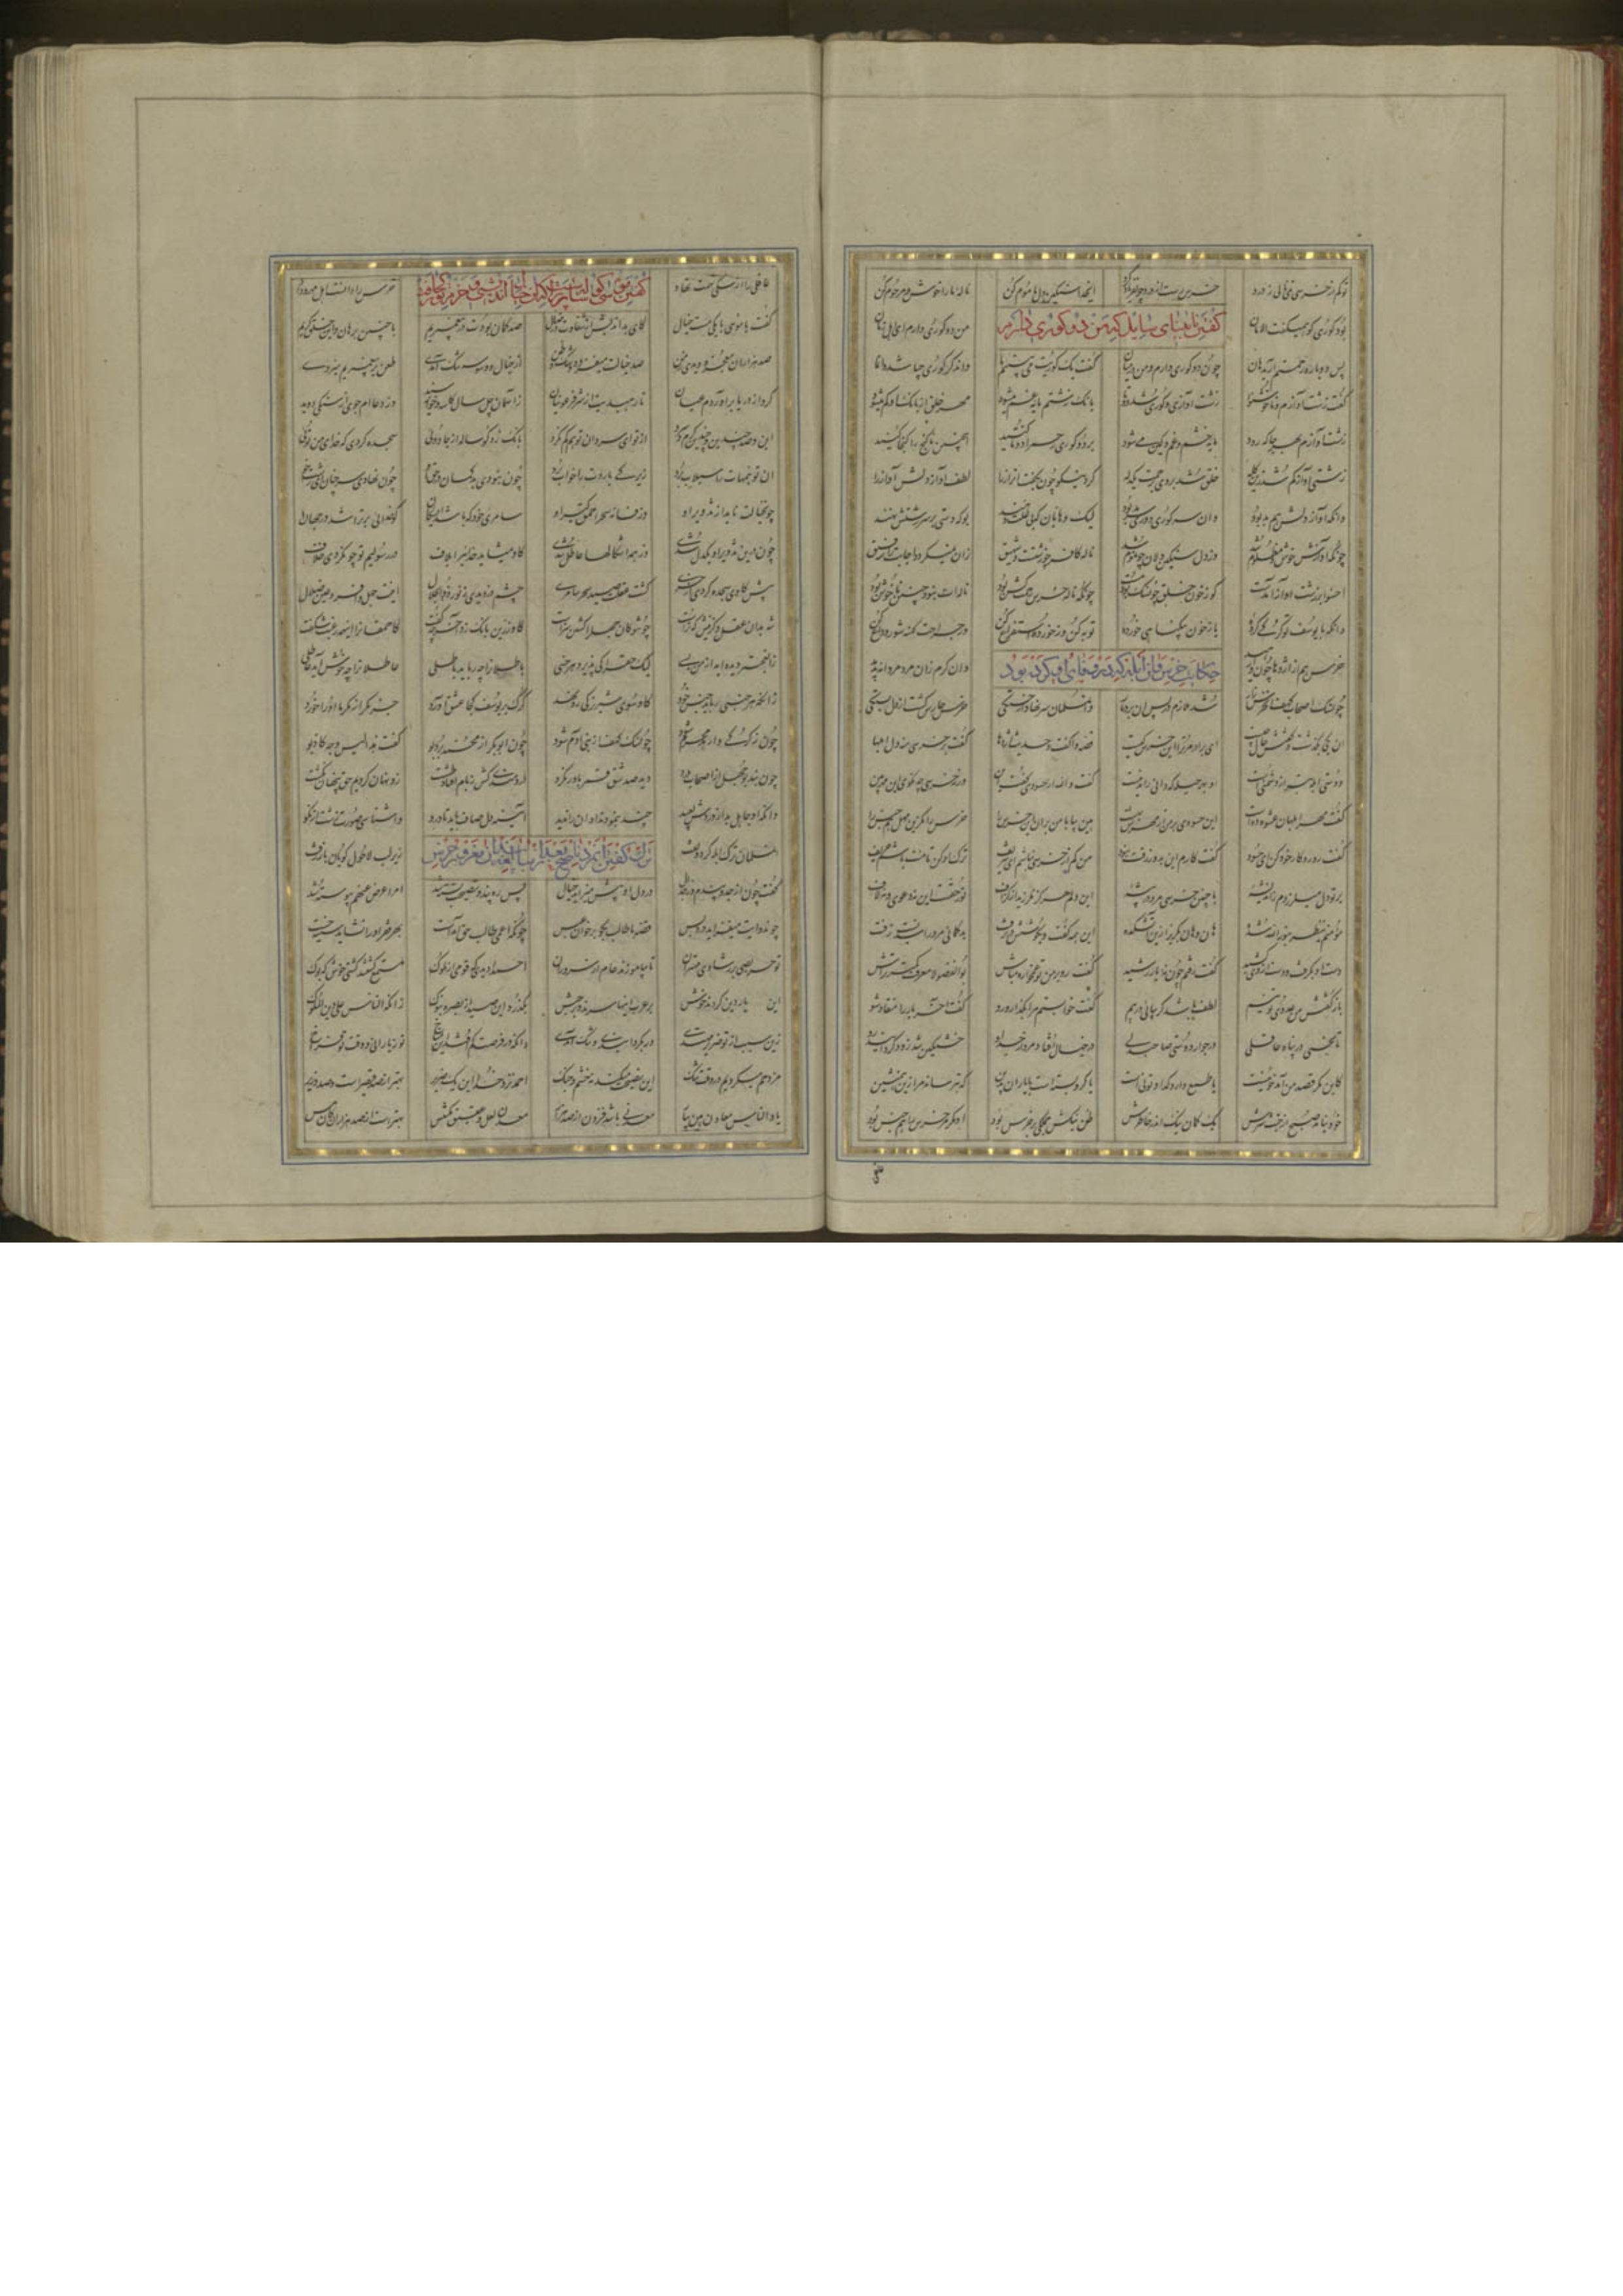 تو کم از خرسی نمی نالی ز درد خرس رست از درد چون فریاد کرد ای خدا سنگین دل ما موم کن ناله ما را خوش و مرحوم کن
بود کوری کو همیگفت الامان من دو کوری دارم ای اهل زمان
گفتن نابینای سایل که من دو کوری دارم
پس دوباره رحمتم آرید هان چون دو کوری دارم و من در میان گفت یک کوریت می بینیم ما وان دگر کوری چه باشد وا نما
گفت زشت آوازم و ناخوش نوا زشت آوازی و کوری شد دوتا بانگ زشتم مایه غم میشود مهر خلق از بانگ من کم میشود
زشت آوازم بهر جا که رود مایه خشم و غم و کین می شود بر دو کوری رحم را دوتا کنید اینچنین ناگنج را گنجا کنید
زشتی آواز کم شد زین گله خلق شد بر وی برحمت یکدله کرد نیکو چون بگفت او راز را لطف آواز دلش آواز را
وانکه آواز دلش هم بد بود وان سه کوری دوری سرمد بود لیک وهابان که بی علت دهند بوکه دستی بر سر زشتش نهند
چونکه آوازش خوش و مظلوم شد زو دل سنگین دلان چون موم شد ناله کافر چو زشتست و شهیق زان نمیگردد اجابت را رفیق
اخسوا بر زشت آواز آمدست کو ز خون خلق چون سگ بود مست چونکه ناله خرس رحمت کش بود ناله ات نبود چنین ناخوش بود
دانکه با یوسف تو گرگی کرده یا ز خون بیگناهی خورده توبه کن وز خورده استفراغ کن ور جراحت کهنه شد رو داغ کن
خرس هم از اژدها چون وارهید وان کرم زان مرد مردانه بدید
حکایت خرس و آن ابله که بر وفای او تکیه کرده بود
چون سگ اصحاب کهف آن خرس زار شد ملازم در پس آن بردبار وان مسلمان سر نهاد از خستگی خرس حارس گشت از دل بستگی
آن یکی بگذشت و گفتش حال چیست ای برادر مر ترا این خرس کیست قصه واگفت و حدیث اژدها گفت بر خرسی منه دل ابلها
دوستی ابله بتر از دشمنیست او بهر حیله که دانی راندنیست گفت والله از حسودی گفت این ورنه خرسی چه نگری این مهر بین
گفت مهر ابلهان عشوه دهست این حسودی من از مهرش بهست هین بیا با من بران این خرس را خرس را مگزین مهل هم جنس را
گفت رو رو کار خود کن ای حسود گفت کارم این بد و رزقت نبود من کم از خرسی نباشم ای شریف ترک او کن تا منت باشم حریف
بر تو دل میلرزدم ز اندیشه با چنین خرسی مرو در بیشه این دلم هرگز نلرزید از گزاف نور حقست این نه دعوی و نه لاف
مؤمنم ینظر بنور الله شده هان و هان بگریز ازین آتشکده این همه گفت و بگوشش در نرفت بدگمانی مرد را سدیست زفت
دست او بگرفت و دست از وی کشید گفت رفتم چون نه یار رشید گفت رو بر من تو غمخواره مباش بوالفضولا معرفت کمتر تراش
باز گفتش من عدوی تو نیم لطف باشد گر بیایی در پیم گفت خوابستم مرا بگذار و رو گفت آخر یار را منقاد شو
تا بخسپی در پناه عاقلی در جوار دوستی صاحبدلی در خیال افتاد مرد از جد او خشمگین شد زود گردانید رو
کاین مگر قصد من آمد خونیست یا طمع دارد گدا و تونیست یا گرو بستست با یاران بدین که بترساند مرا زین همنشین
خود نیامد هیچ از خبث سرش یک گمان نیک اندر خاطرش ظن نیکش جملگی بر خرس بود او مگر مر خرس را هم جنس بود
عاقلی را از سگی تهمت نهاد خرس را دانست اهل مهر و داد
گفتن موسی گوساله پرست را که آن خیال اندیشی و حزم تو کجاست
گفت موسی با یکی مست خیال کای بداندیش از شقاوت وز ضلال صد گمانت بود در پیغمبریم با چنین برهان و این خلق کریم
صد هزاران معجزه دیدی ز من صد خیالت میفزود و شک و ظن از خیال و وسوسه تنگ آمدی طعن بر پیغمبریم میزدی
گرد از دریا برآوردم عیان تا رهیدیت از شر فرعونیان ز آسمان چل سال کاسه و خوان رسید وز دعاام جوی از سنگی دوید
این و صد چندین و چندین گرم و سرد از تو ای سرد آن توهم کم نکرد بانگ زد گوساله از جادوئی سجده کردی که خدای من توئی
آن توهمهات را سیلاب برد زیرکی باردت را خواب برد چون نبودی بدگمان در حق او چون نهادی سر چنان ای زشت رو
چون خیالت نامد از تزویر او وز فساد سحر احمق گیر او سامری خود که باشد ای سگان که خدایی بر تراشد در جهان
چون درین تزویر او یکدل شدی وز همه اشکالها عاطل شدی گاو میشاید خدایی را بلاف در رسولیم تو چون کردی خلاف
پیش گاوی سجده کردی از خری گشت عقلت صید سحر سامری چشم دزدیدی ز نور ذوالجلال اینت جهل وافر و عین ضلال
شه بدان عقل و گزینش که تراست چون تو کان جهل را کشتن سزاست گاو زرین بانگ زد آخر چه گفت کاحمقان را اینهمه رغبت شگفت
زان عجبتر دیده اید از من بسی لیک حق را کی پذیرد هر خسی باطلان را چه رباید باطلی عاطلان را چه خوش آید عاطلی
زانکه هر جنسی رباید جنس خود گاو سوی شیر نر کی رو نهد گرگ بر یوسف کجا عشق آورد جز مگر از مکر تا او را خورد
چون ز گرگی وارهد محرم شود چون سگ کهف از بنی آدم شود چون ابوبکر از محمد برد بو گفت هذا لیس وجه کاذبو
چون نبد بوجهل از اصحاب درد دید صد شق قمر باور نکرد دردمندی کش ز بام افتاد طشت زو نهان کردیم حق پنهان نگشت
وانکه او جاهل بد از دردش بعید چند بنمودند و او آن را ندید آینه دل صاف باید تا درو واشناسی صورت زشت از نکو
آن مسلمان ترک ابله کرد و تفت زیر لب لاحول گویان باز رفت
ترک گفتن آن مرد ناصح بعد از مغرور خرس
گفت چون از جد و پندم وز جدال در دل او بیش میزاید خیال پس ره پند و نصیحت بسته شد امر اعرض عنهم پیوسته شد
چون دوایت میفزاید درد پس قصه با طالب بگو بر خوان عبس چونکه اعمی طالب حق آمدست بهر فقر او را نشاید سینه خست
تو حریصی بر رشاد مهتران تا بیاموزند عام از سروران احمدا دیدی که قومی از ملوک مستمع گشتند گشتی خوش که بوک
این یار دین گردند خوش بر عرب اینها سرند و بر حبش بگذرد این صیت از بصره و تبوک زانکه الناس علی دین الملوک
زین سبب تو از ضریر مهتدی رو بگردانیدی و تنگ آمدی کم افتد این مناخ تو ز یارانی و وقت تو فراخ
مزدحم میگردیم در وقت تنگ این نصیحت میکنم نه از خشم و جنگ احمدا نزد خدا این یک ضریر بهتر از صد قیصرست و صد وزیر
یاد الناس معادن هین بیار معدنی باشد فزون از صد هزار معدن لعل و عقیق مکتنس بهترست از صد هزاران کان مس